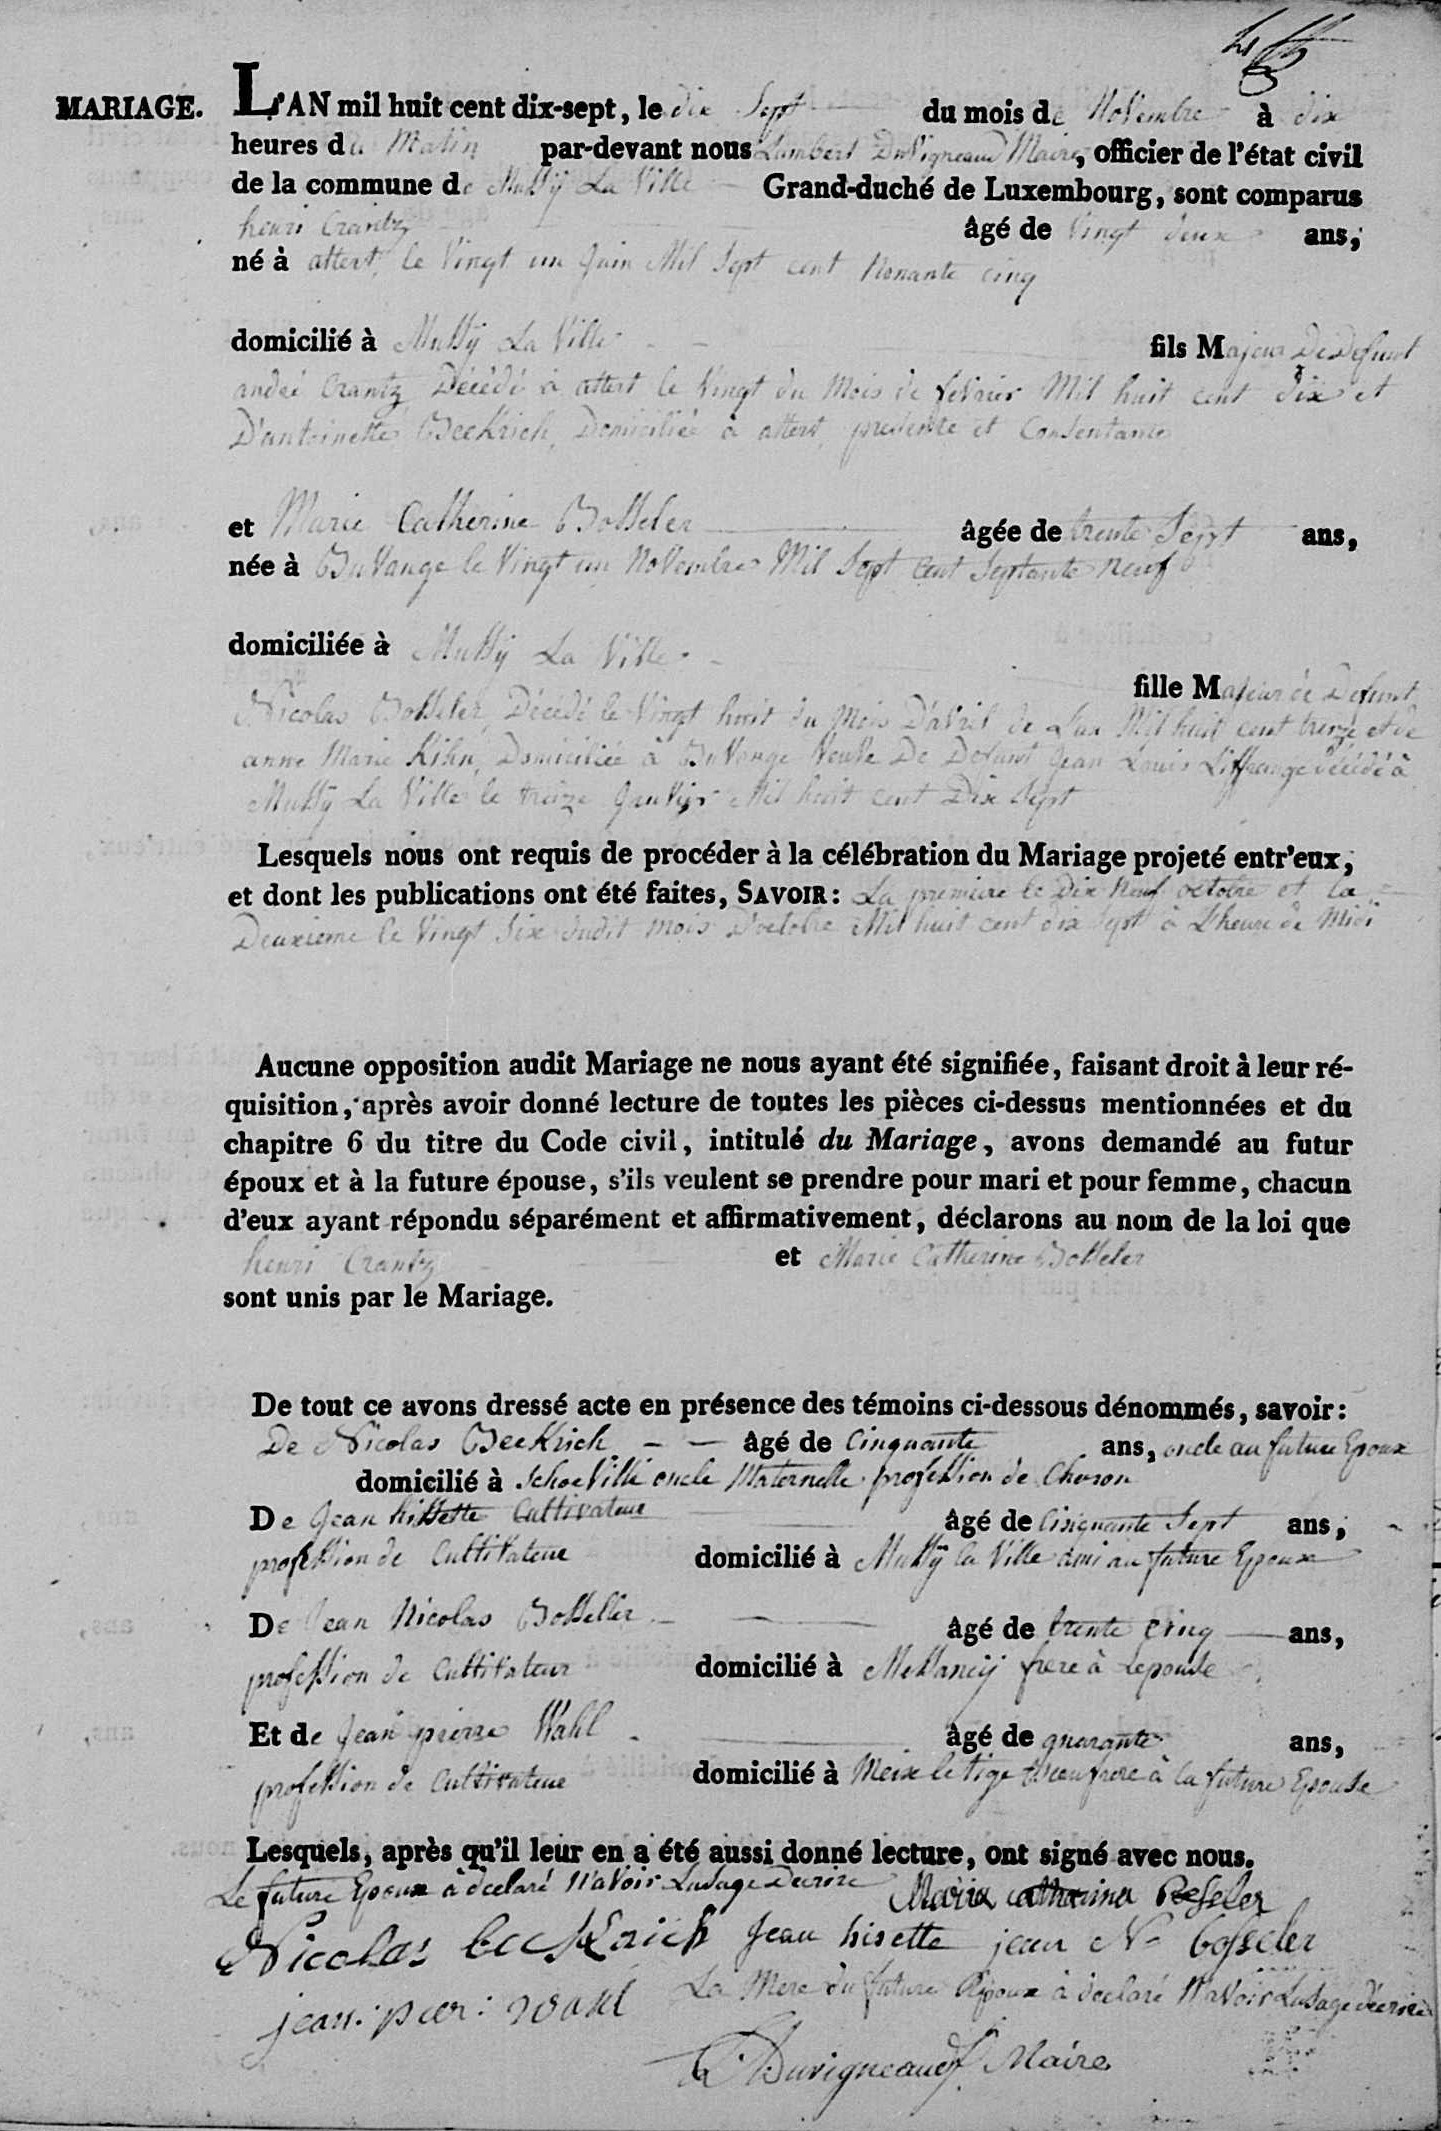 MARIAGE. L'AN mil huit cent dix-sept, le dix Sept du mois de Novembre à dix
heures du Matin par-devant nous Lambert Duvigneaud Maire, officier de l'état civil
de la commune de Mussÿ La Ville Grand-duché de Luxembourg, sont comparus
henri Crantz âgé de Vingt deux ans,
né à attert, le Vingt un Juin Mil Sept cent Nonante cinq
domicilié à Mussÿ La Ville fils Majeur De Defunt
andré Crantz, Décédé à attert le Vingt du Mois de fevrier Mil huit cent dix et
D'antoinette Beckrich, Domiciliée à attert, presente et Consentante
et Marie Catherine Bosseler âgée de trente Sept ans,
née à Buvange le Vingt un Novembre Mil Sept cent Septante Neuf
domiciliée à Mussÿ La Ville
fille Majeur de Defunt
Nicolas Bosseler, Décédé le Vingt huit du Mois D'avril de L'an Mil huit cent treize et de
anne Marie Kihn, Domiciliée à Buvange Veuve De Defunt Jean Louis Liffrange décédé à
Mussÿ La Ville le treize Janvier Mil huit cent Dix Sept
Lesquels nous ont requis de procéder à la célébration du Mariage projeté entr'eux,
et dont les publications ont été faites, SAVOIR: La premiere le Dix Neuf octobre et la
Deuxieme le Vingt Six dudit mois D'octobre Mil huit cent dix Sept à L'heure de Midi
Aucune opposition audit Mariage ne nous ayant été signifiée, faisant droit à leur ré-
quisition, après avoir donné lecture de toutes les pièces ci-dessus mentionnées et du
chapitre 6 du titre du Code civil, intitulé du Mariage, avons demandé au futur
époux et à la future épouse, s'ils veulent se prendre pour mari et pour femme, chacun
d'eux ayant répondu séparément et affirmativement, déclarons au nom de la loi que
henri Crantz et Marie Catherine Bosseler
sont unis par le Mariage.
De tout ce avons dressé acte en présence des témoins ci-dessous dénommés, savoir:
De Nicolas Beckrich âgé de Cinquante ans, oncle au future Epoux
domicilié à Schoeville oncle Maternelle profession de Charon
De Jean hissette Cultivateur âgé de Cinquante Sept ans,
profession de Cultivateur domicilié à Mussÿ la Ville ami au future Epoux
De Jean Nicolas Bosseler âgé de trente Cinq ans,
profession de Cultivateur domicilié à Messancÿ frere à Lepouse
Et de Jean pierre Wahl âgé de quarante ans,
profession de Cultivateur domicilié à Meix le tige Beaufrere à la future Epouse
Lesquels, après qu'il leur en a été aussi donné lecture, ont signé avec nous.
Le future Epoux à declaré N'avoir Lusage Decrire Maria catharina Bosseler
Nicolas beckrich Jean hisette jean N bosseler
jean: pier: wahl La Mere du future Epoux à declaré N'avoir Lusage décrire
Duvigneaud Maire